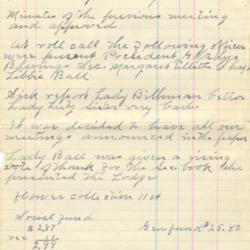 Minutes of the previous meeting
and approved
At roll call the following officer
were present President
Sec. Margaret Elliott Chap
Libbie Ball
Sick report Lady Billman better
Lady very bad
It was decided to have all our
meetings announced in the paper
Lady Ball was given a rising
vote of thank for the she
presented the Lodge
flower collection 11¢
Social fund
$2.87 Gen fund $25.80
rec
2.99